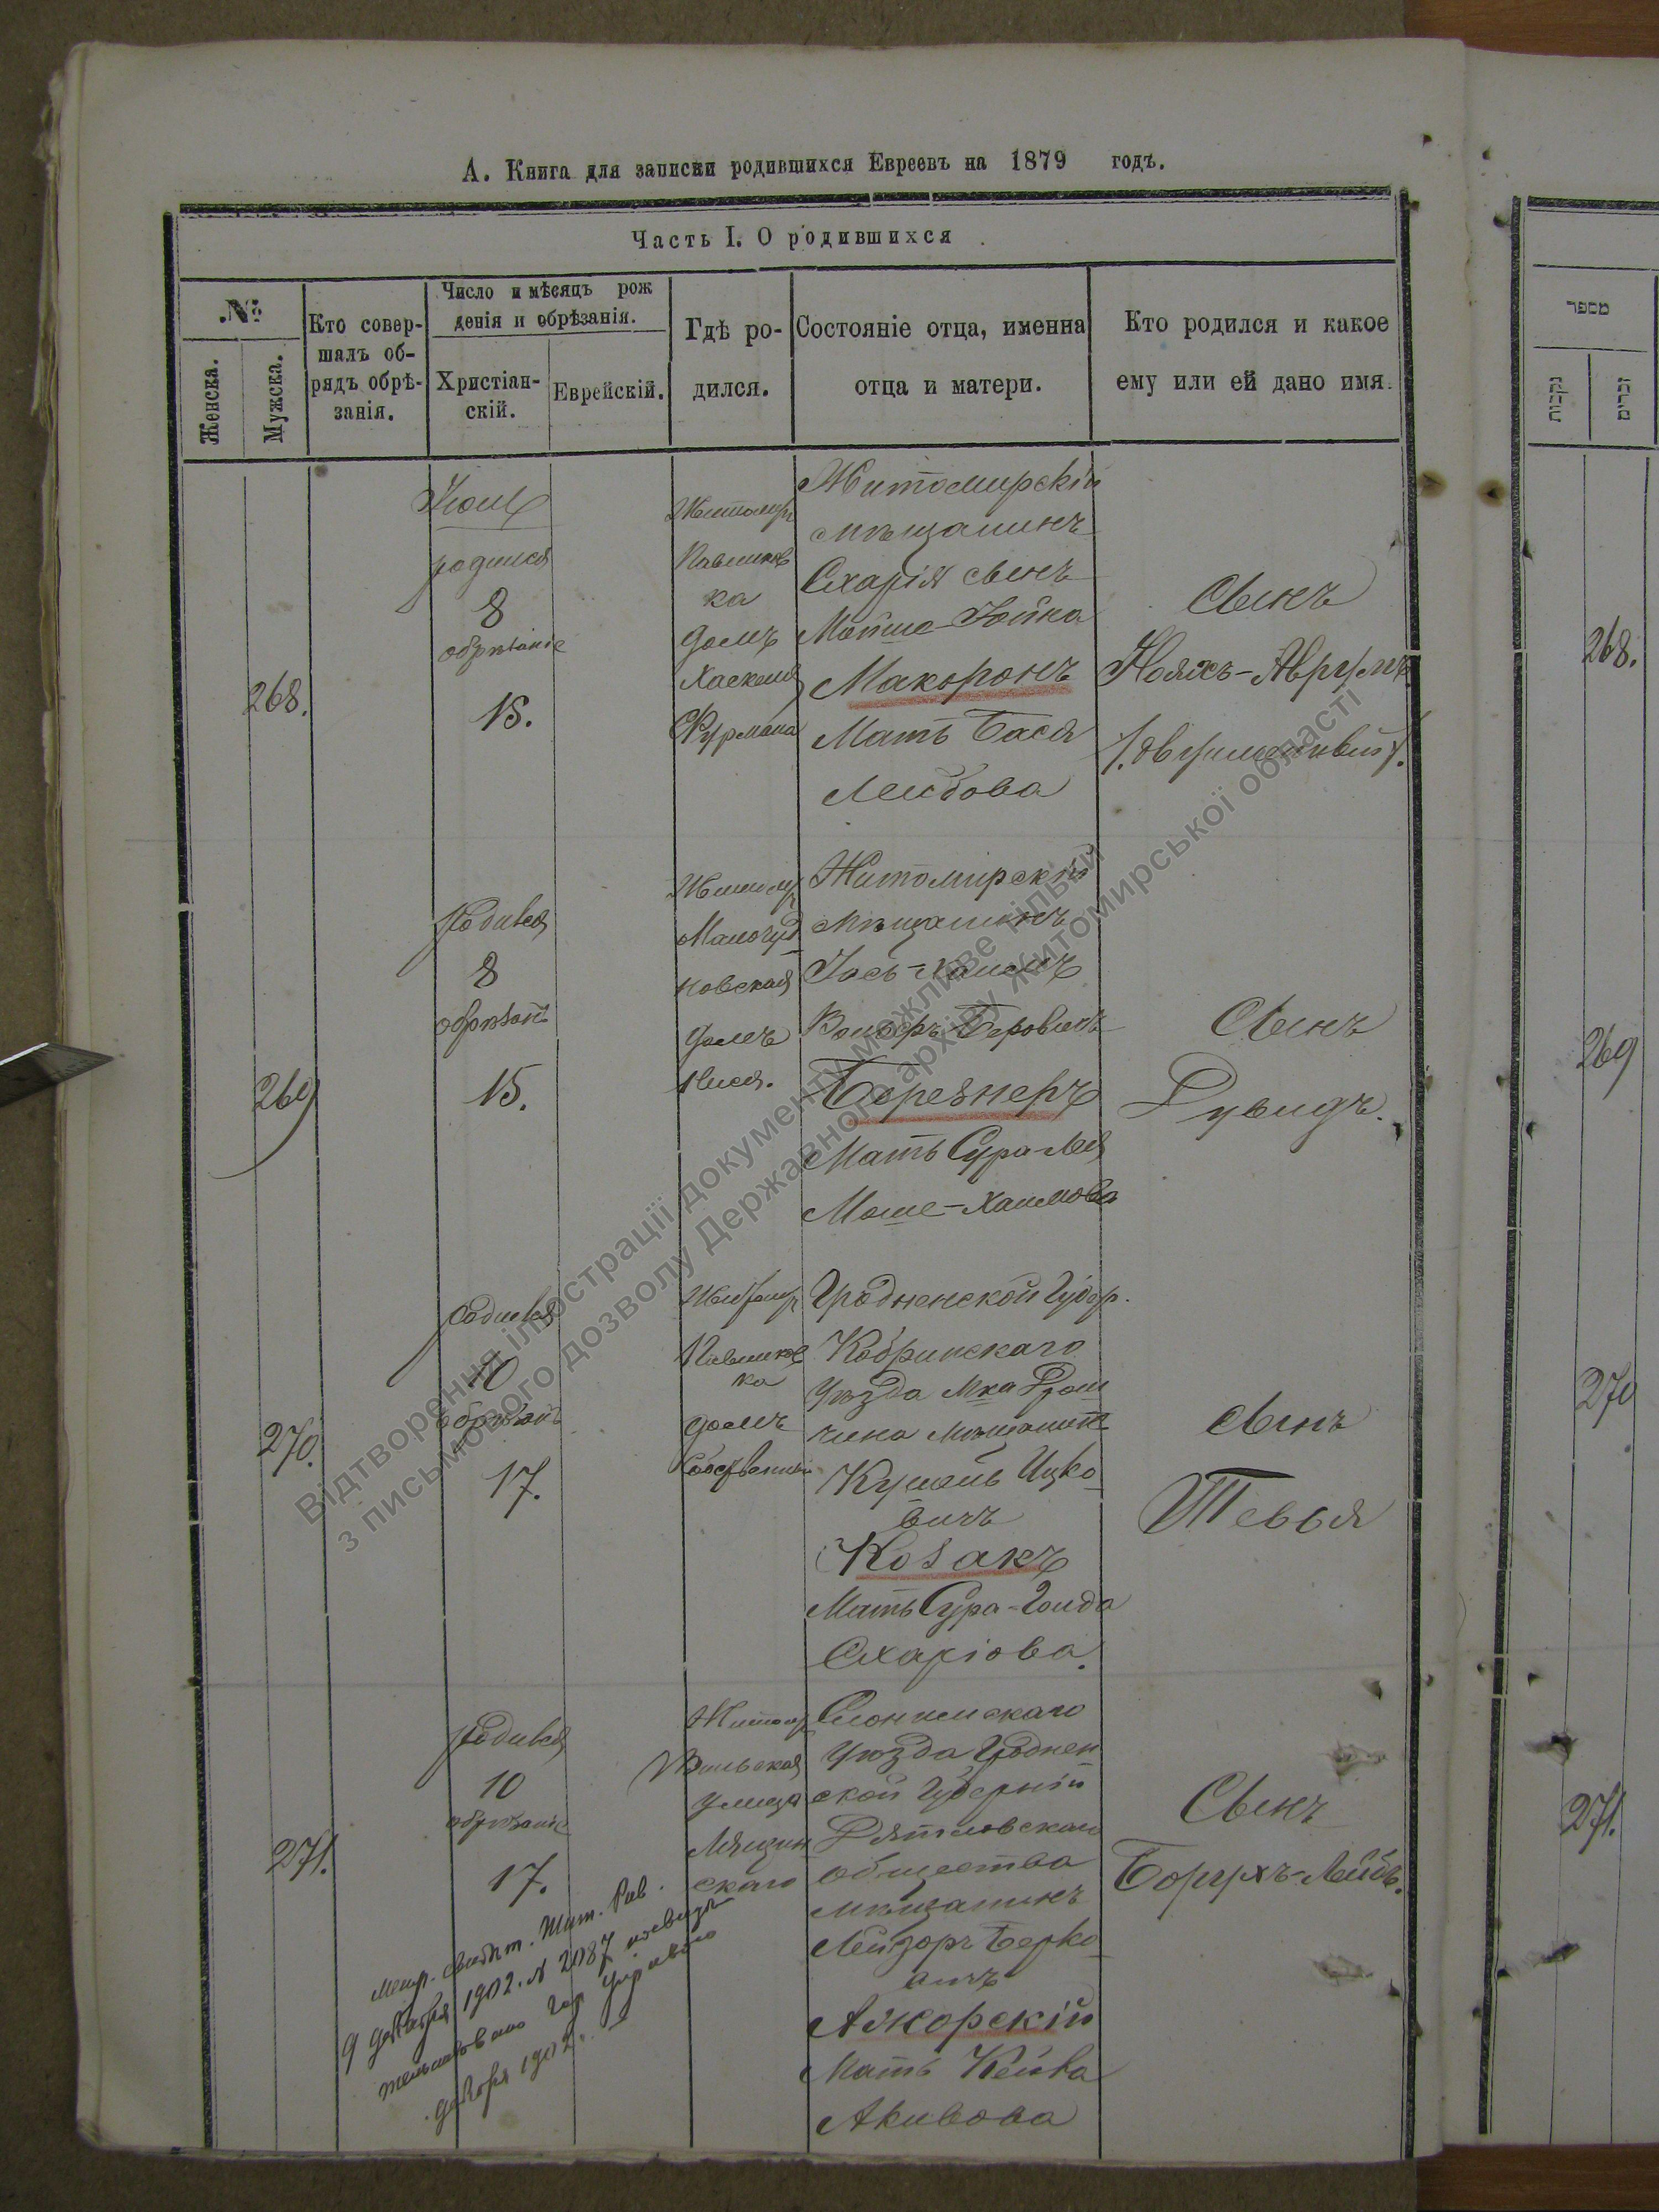 А. Книга для записки родившихся Евреевъ на 1879 годъ.
Часть I. О родившихся
№
Женска.
Мужска.
Кто совер-
шалъ об-
рядъ обрѣ-
занія.
Число и мѣсяцъ рож
денія и обрѣзанія.
Христіан-
скій.
Еврейскій.
Гдѣ ро-
дился.
Состояніе отца, именна
отца и матери.
Кто родился и какое
ему или ей дано имя.
מספר
נקבות
זכרים
268.
родился
8
обрѣзаніе
15.
Житомір
Павликов
ка
домъ
Хаскеля
Фурмана
Житомирскій
мѣщанинъ
Схарія сынъ
Мойше-Йойна
Макоронъ
Мать Бася
Лейбова
Сынъ
Нояхъ-Аврумъ
268.
269
родився
8
обрѣзан
15.
Житомир
Малочуд
новская
домъ
Житомирскій
мѣщанинъ
Іось-Хаимъ
Беровичъ
Березнеръ
Мать Сура-Лея
Моше-Хаимова
Сынъ
Рувидъ.
269
270.
Родився
10
обрѣзан
17.
Житомир
Павликов
ка
домъ
Собственный
Гродненской Губер.
Кобринскаго
Уѣзда Мка Дрог
чина Мѣщанинъ
Ицко
вичъ
Козакъ
Мать Сура-Голда
Схаріова.
сынъ
Тевья
270
271.
родився
10
обрѣзаніе
17.
Житомир
Вильская
улица
скаго
Слонимскаго
Уѣзда Гроднен
ской Губерніи
Дятловскаго
общества
мѣщанинъ
Лейзоръ Берко
вичъ
Ажорскій
Мать Кейва
Акивова
Сынъ
Борухъ-Лейбъ.
271.
Метр. свидѣт. Жит. Рав.
9 декабря 1902. № 2087 посвидѣ
тельствовано Гор. Управою
декабря 1902
Відтворення ілюстрації документу можливе тільки
з письмового дозволу Державного архіву Житомирської області